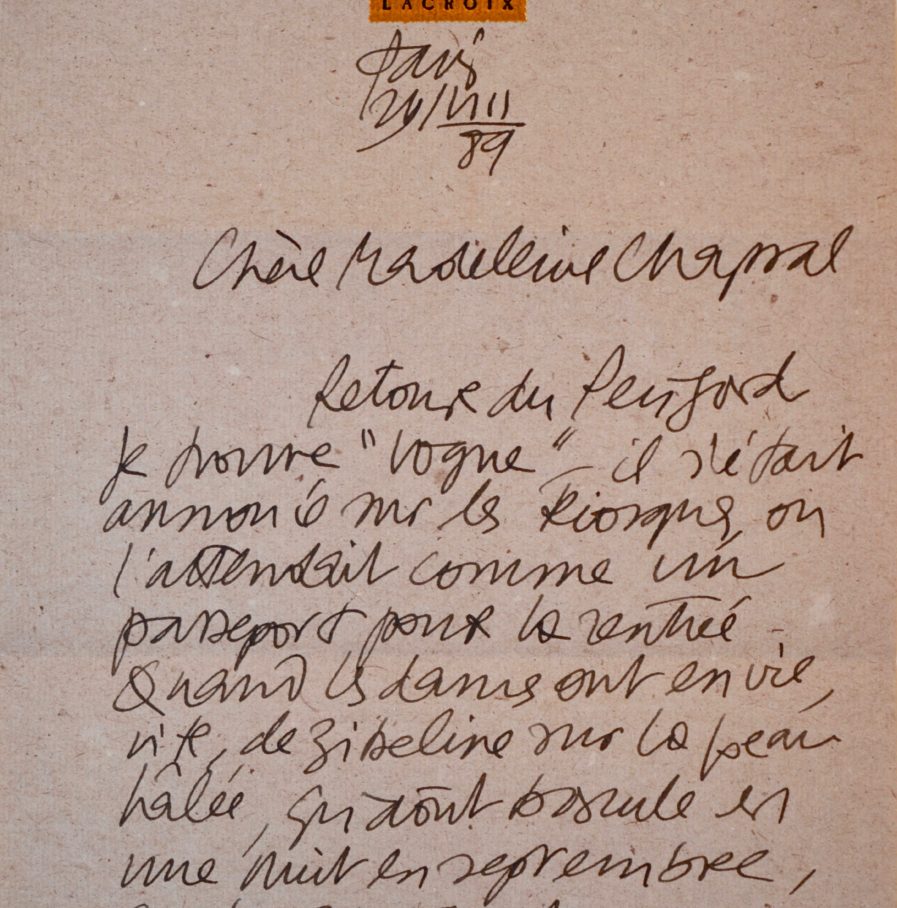 LACROIX
Paris
29/VIII
89
Chère Madeleine Chapsal
Retour du Périgord
je trouve "Vogue" - il s'était
annoncé sur les kiosques, on
l'attendait comme un
passeport pour la rentrée -
Quand les dames ont envie,
vite, de zibeline sur la peau
hâlée, qu'août bascule en
une nuit en septembre,